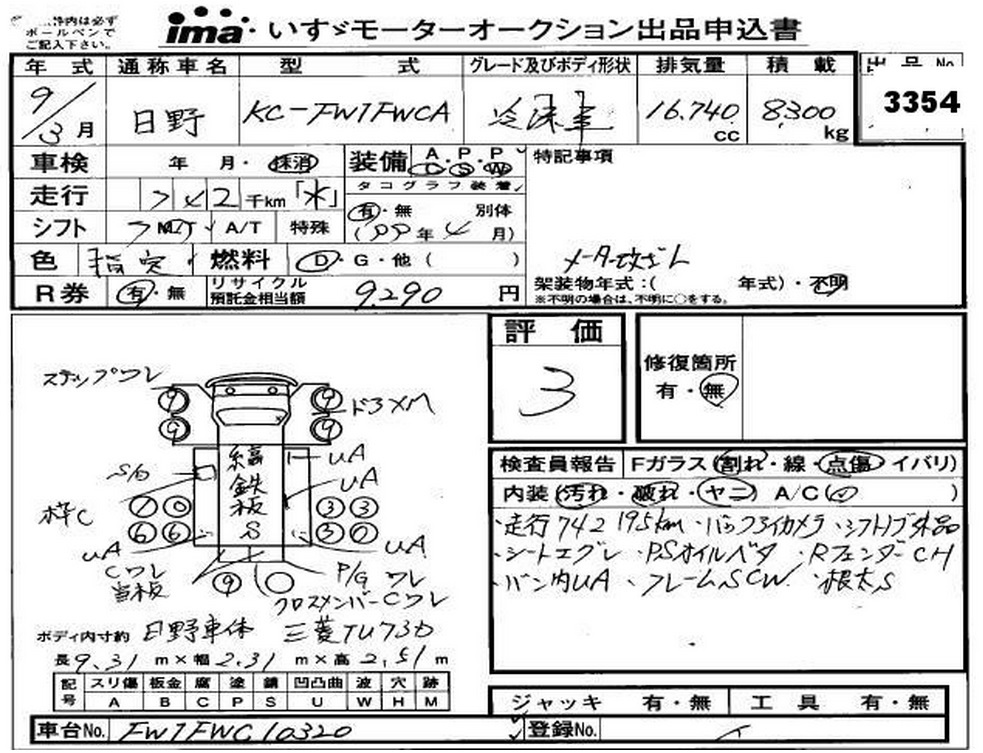 ボールペンで
ご記入下さい。
ima・いすゞモーターオークション出品申込書
年式 通称車名 型式 グレード及びボディ形状 排気量 積載
9/3月 日野 KC-FW1FWCA 冷凍車 16.740cc 8300kg 3354
車検 年 月・抹消 装備 A・P・P C S W 特記事項
走行 742千km「水」 タコグラフ装着
シフト 7 M/T A/T 特殊 有・無 別体
(99年4月)
色 指定 燃料 D・G・他( ) メーター改ざん
R券 有・無 リサイクル預託金相当額 9.290円 架装物年式:( 年式)・不明
※不明の場合は、不明に○をする。
評価 3 修復箇所
有・無
ステップワレ
ドラメM
縞鉄板S
UA
S/G
UA
枠C
UA
UA
Cワレ
当板
P/G ワレ
クロスメンバーCワレ
ボディ内寸約 日野車体 三菱TU73D
長9.31m×幅2.31m×高2.51m
検査員報告 Fガラス(割れ・線・点傷 イバリ)
内装(汚れ・破れ・ヤニ) A/C( )
・走行742195km・バックアイカメラ・シフトノブ外品
・シートエグレ・PSオイルベタ・RフェンダーCH
・バン内UA・フレームSCW・根太S
記号 スリ傷 板金 腐 塗 錆 凹凸曲 波 穴 跡
A B C P S U W H M
ジャッキ 有・無 工具 有・無
車台No. FW1FWC10320 登録No.